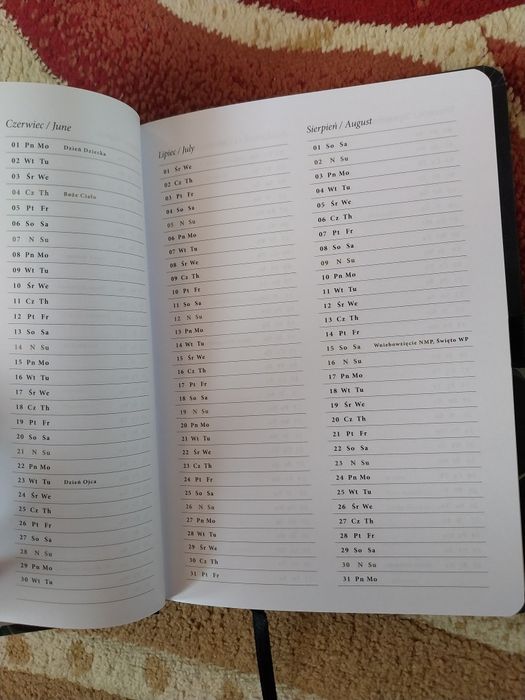 Czerwiec / June
01 Pn Mo Dzień Dziecka
02 Wt Tu
03 Śr We
04 Cz Th Boże Ciało
05 Pt Fr
06 So Sa
07 N Su
08 Pn Mo
09 Wt Tu
10 Śr We
11 Cz Th
12 Pt Fr
13 So Sa
14 N Su
15 Pn Mo
16 Wt Tu
17 Śr We
18 Cz Th
19 Pt Fr
20 So Sa
21 N Su
22 Pn Mo
23 Wt Tu Dzień Ojca
24 Śr We
25 Cz Th
26 Pt Fr
27 So Sa
28 N Su
29 Pn Mo
30 Wt Tu
Lipiec / July
01 Śr We
02 Cz Th
03 Pt Fr
04 So Sa
05 N Su
06 Pn Mo
07 Wt Tu
08 Śr We
09 Cz Th
10 Pt Fr
11 So Sa
12 N Su
13 Pn Mo
14 Wt Tu
15 Śr We
16 Cz Th
17 Pt Fr
18 So Sa
19 N Su
20 Pn Mo
21 Wt Tu
22 Śr We
23 Cz Th
24 Pt Fr
25 So Sa
26 N Su
27 Pn Mo
28 Wt Tu
29 Śr We
30 Cz Th
31 Pt Fr
Sierpień / August
01 So Sa
02 N Su
03 Pn Mo
04 Wt Tu
05 Śr We
06 Cz Th
07 Pt Fr
08 So Sa
09 N Su
10 Pn Mo
11 Wt Tu
12 Śr We
13 Cz Th
14 Pt Fr
15 So Sa Wniebowzięcie NMP, Święto WP
16 N Su
17 Pn Mo
18 Wt Tu
19 Śr We
20 Cz Th
21 Pt Fr
22 So Sa
23 N Su
24 Pn Mo
25 Wt Tu
26 Śr We
27 Cz Th
28 Pt Fr
29 So Sa
30 N Su
31 Pn Mo